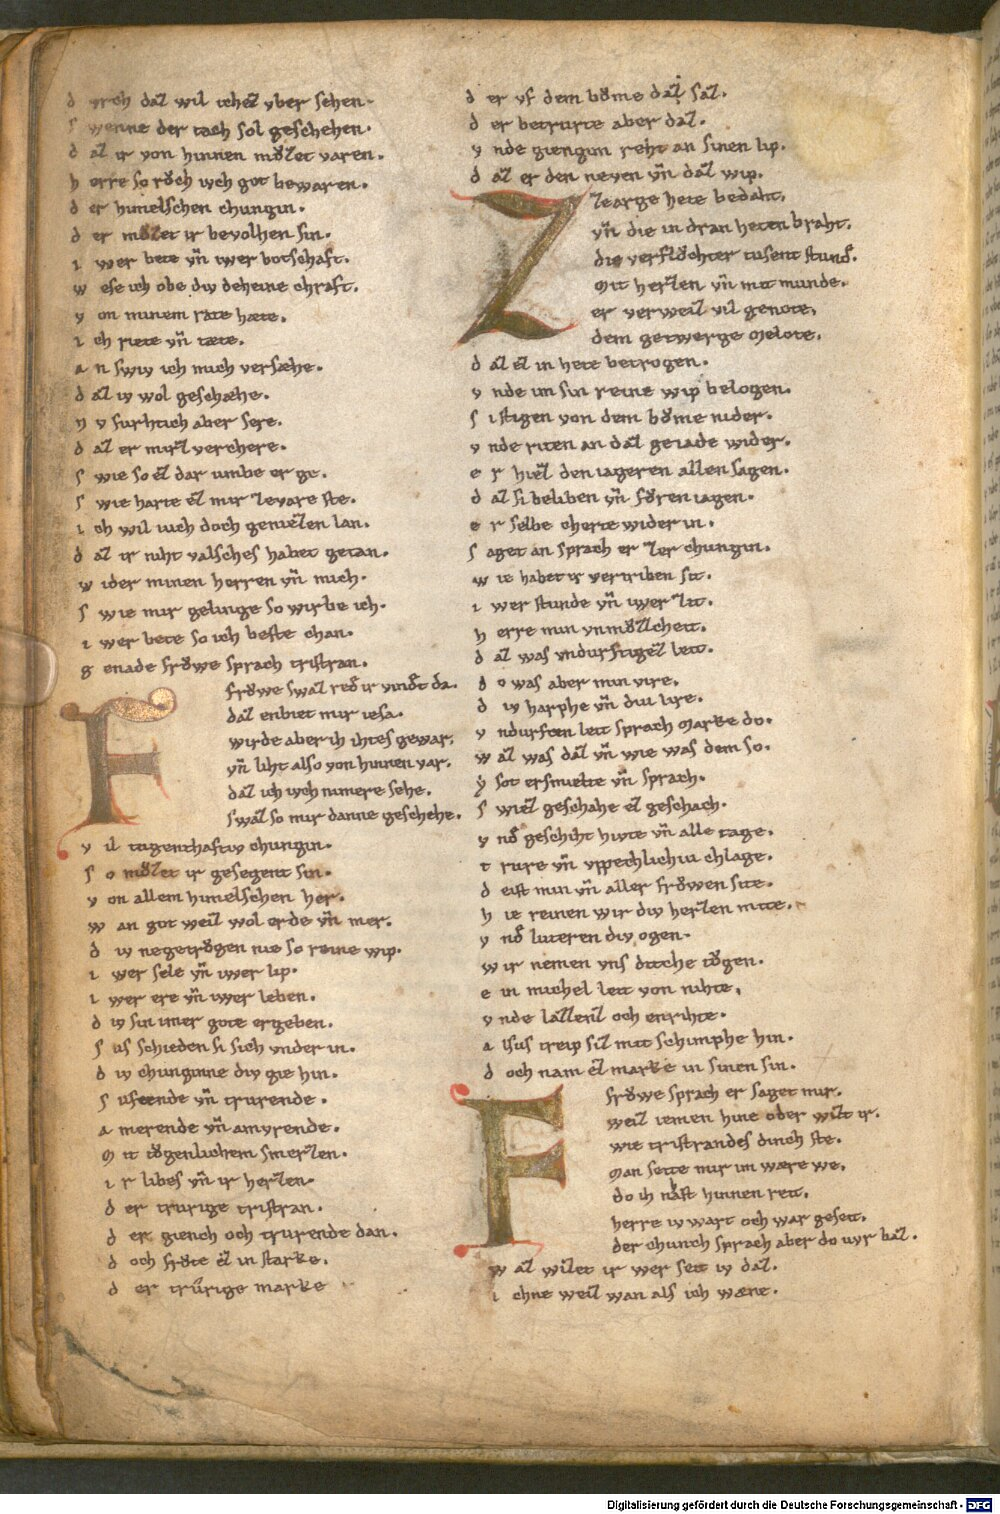 d vrch daz wil ichez vber sehen.
s wenne der tach sol geschehen.
d az ir von hinnen mvͦzet varen.
h erre so rvͦch ivch got bewaren.
d er himelschen chungin.
d er mvͦzet ir bevolhen sin.
i wer bete vn̄ iwer botschaft.
w ese ich obe div deheine chraft.
v on minem rate hæte.
i ch riete vn̄ tæte.
a n swiv ich mich versæhe.
d az iv wol geschæhe.
n v furhtich aber sere.
d az er mirz verchere.
s wie so ez dar umbe er ge.
s wie harte ez mir ze vare ste.
i ch wil iuch doch geniezen lan.
d az ir niht valsches habet getan.
w ider minen herren vn̄ mich.
s wie mir gelinge so wirbe ich.
i wer bete so ich beste chan.
g enade frowe sprach tristran.
F frowe swaz red ir vindet da.
daz enbiet mir iesa.
wirde aber ih ihtes gewar.
vn̄ liht also von hinnen var.
daz ich ivch nimere sehe.
swaz so mir danne geschehe.
v il tugenthaftiv chungin.
s o mvͦzet ir gesegent sin.
v on allem himelschen her.
w an got weiz wol erde vn̄ mer.
d iv negetrvͦgen nie so reine wip.
i wer sele vn̄ iwer lip.
i wer ere vn̄ iwer leben.
d iv sin imer gote ergeben.
s us schieden si sich vnder in.
d iv chunginne div gie hin.
s ufcende vn̄ trurende.
a merende vn̄ amvrende.
m it togenlichem smerzen.
i r libes vn̄ ir herzen.
d er trurige tristran.
d er giench och trurende dan.
d och frote ez in starke.
d er trurige marke
d er vf dem bovme daz saz.
d er betrurte aber daz.
v nde giengim reht an sinen lip.
d az er den neven vn̄ daz wip.
Z ze arge hete bedaht.
vn̄ die in dran heten braht.
die verflvͦchter tusent stund.
mit herzen vn̄ mit munde.
er verweiz vil genote.
dem getwerge melote.
d az ez in hete betrogen.
v nde im sin reine wip belogen.
s i stigen von dem bovme nider.
v nde riten an daz geiade wider.
e r hiez den iageren allen sagen.
d az si beliben vn̄ fvͦren iagen.
e r selbe cherte wider in.
s aget an sprach er zer chungin.
w ie habet ir vertriben sit.
i wer stunde vn̄ iwer zit.
h erre min vnmvͦzicheit.
d az was vndurftigez leit.
d o was aber min vire.
d iv harphe vn̄ diu lire.
v ndurften leit sprach marke do.
w az was daz vn̄ wie was dem so.
ysot ersmielte vn̄ sprach.
s wiez geschahe ez geschach.
v nd geschiht hiwte vn̄ alle tage.
t rure vn̄ vppechlichiu chlage.
d eist min vn̄ aller frowen site.
h ie reinen wir div herzen mite.
v nd luteren div ogen.
w ir nemen vns diche togen.
e in michel leit von nihte.
v nde lazzenz och enrihte.
a lsus treip siz mit schimphe hin.
d och nam ez marke in sinen sin.
F frowe sprach er saget mir.
weiz iemen hine oder wizt ir.
wie tristrandes dinch ste.
man seite mir im wære we.
do ih næst hinnen reit.
herre iv wart och war geseit.
der chunch sprach aber do vvr baz.
w az wizet ir wer seit iv daz.
i chne weiz wan als ich wæne.
Digitalisierung gefördert durch die Deutsche Forschungsgemeinschaft - DFG